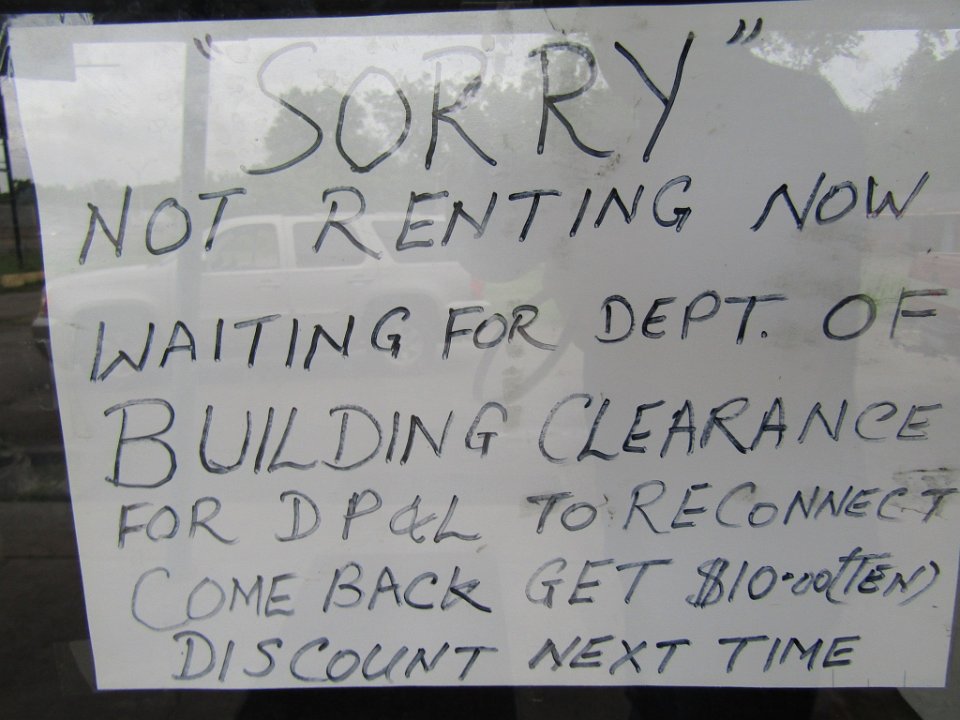 "SORRY"
NOT RENTING NOW
WAITING FOR DEPT. OF
BUILDING CLEARANCE
FOR DP&L TO RECONNECT
COME BACK GET $10.00(TEN)
DISCOUNT NEXT TIME